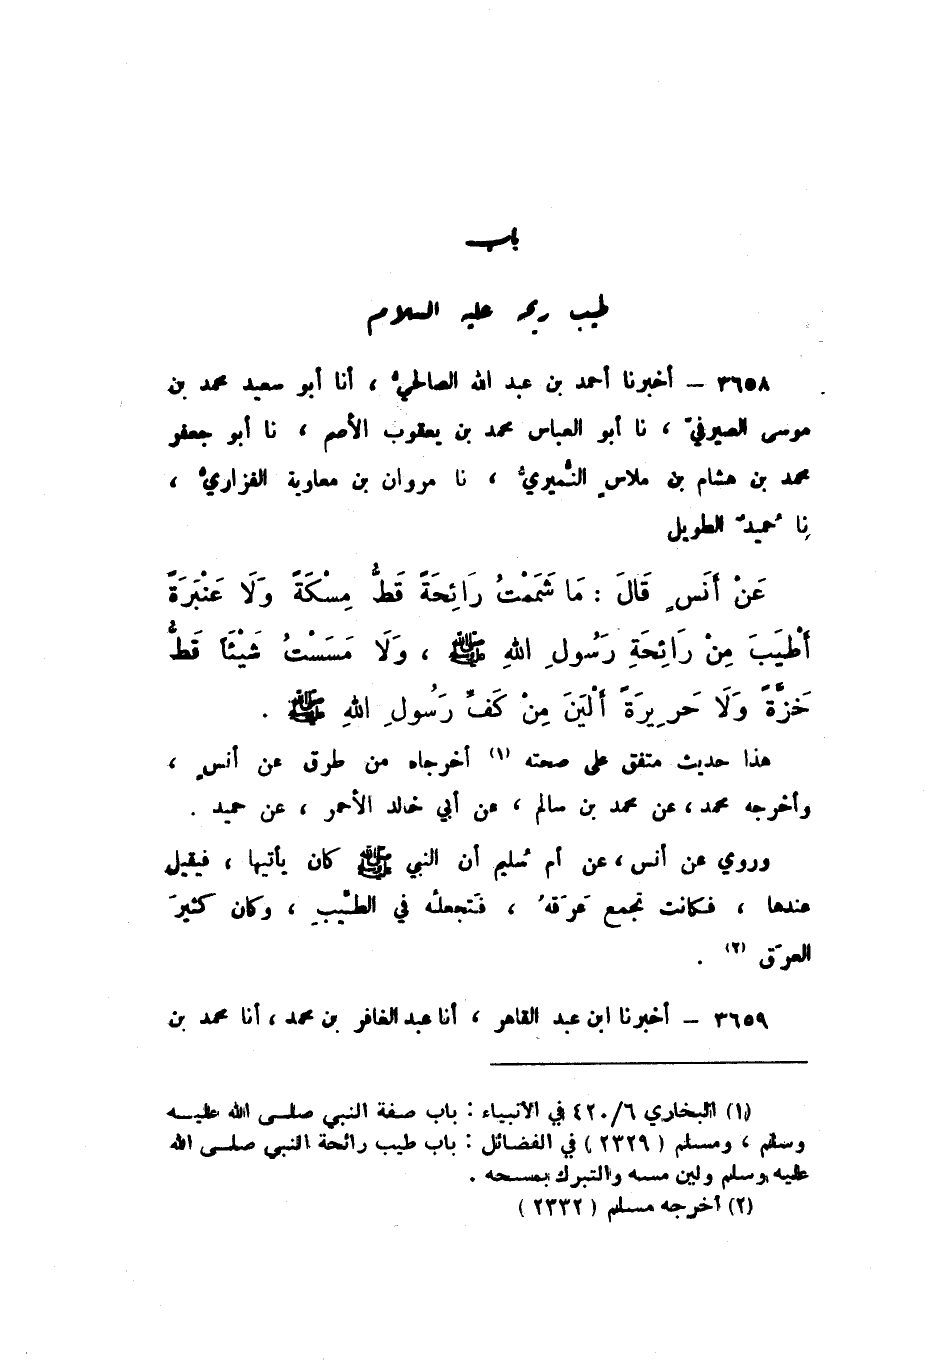 باب
طيب ريحه عليه السلام
٣٦٥٨ – أخبرنا أحمد بن عبد الله الصالحيُّ ، أنا أبو سعيد محمد بن
موسى الصيرفيّ ، نا أبو العباس محمد بن يعقوب الأصم ، نا أبو جعفر
محمد بن هشام بن ملاسٍ النُّميريُّ ، نا مروان بن معاوية الفزاريُّ ،
نا حُميدٌ الطويل
عَنْ أَنَسٍ قَالَ : مَا شَمَمْتُ رَائِحَةً قَطُّ مِسْكَةً وَلَا عَنْبَرَةً
أَطْيَبَ مِنْ رَائِحَةِ رَسُولِ اللهِ ﷺ ، وَلَا مَسَسْتُ شَيْئَاً قَطُّ
خَزَّةً وَلَا حَرِيرَةً أَلْيَنَ مِنْ كَفِّ رَسُولِ اللهِ ﷺ .
هذا حديث متفق على صحته (١) أخرجاه من طرق عن أنسٍ ،
وأخرجه محمد ، عن محمد بن سالم ، عن أبي خالد الأحمر ، عن حميد .
وروي عن أنس ، عن أم سُليم أن النبي ﷺ كان يأتيها ، فيقيل
عندها ، فكانت تجمع عَرَقهُ ، فتَجعلُه في الطِّيبِ ، وكان كثيرَ
العرَق (٢) .
٣٦٥٩ – أخبرنا ابن عبد القاهر ، أنا عبد الغافر بن محمد ، أنا محمد بن
(١) البخاري ٤٢٠/٦ في الأنبياء : باب صفة النبي صلى الله عليه
وسلم ، ومسلم ( ٢٣٢٩ ) في الفضائل : باب طيب رائحة النبي صلى الله
عليه وسلم ولين مسه والتبرك بمسحه .
(٢) أخرجه مسلم ( ٢٣٣٢ )